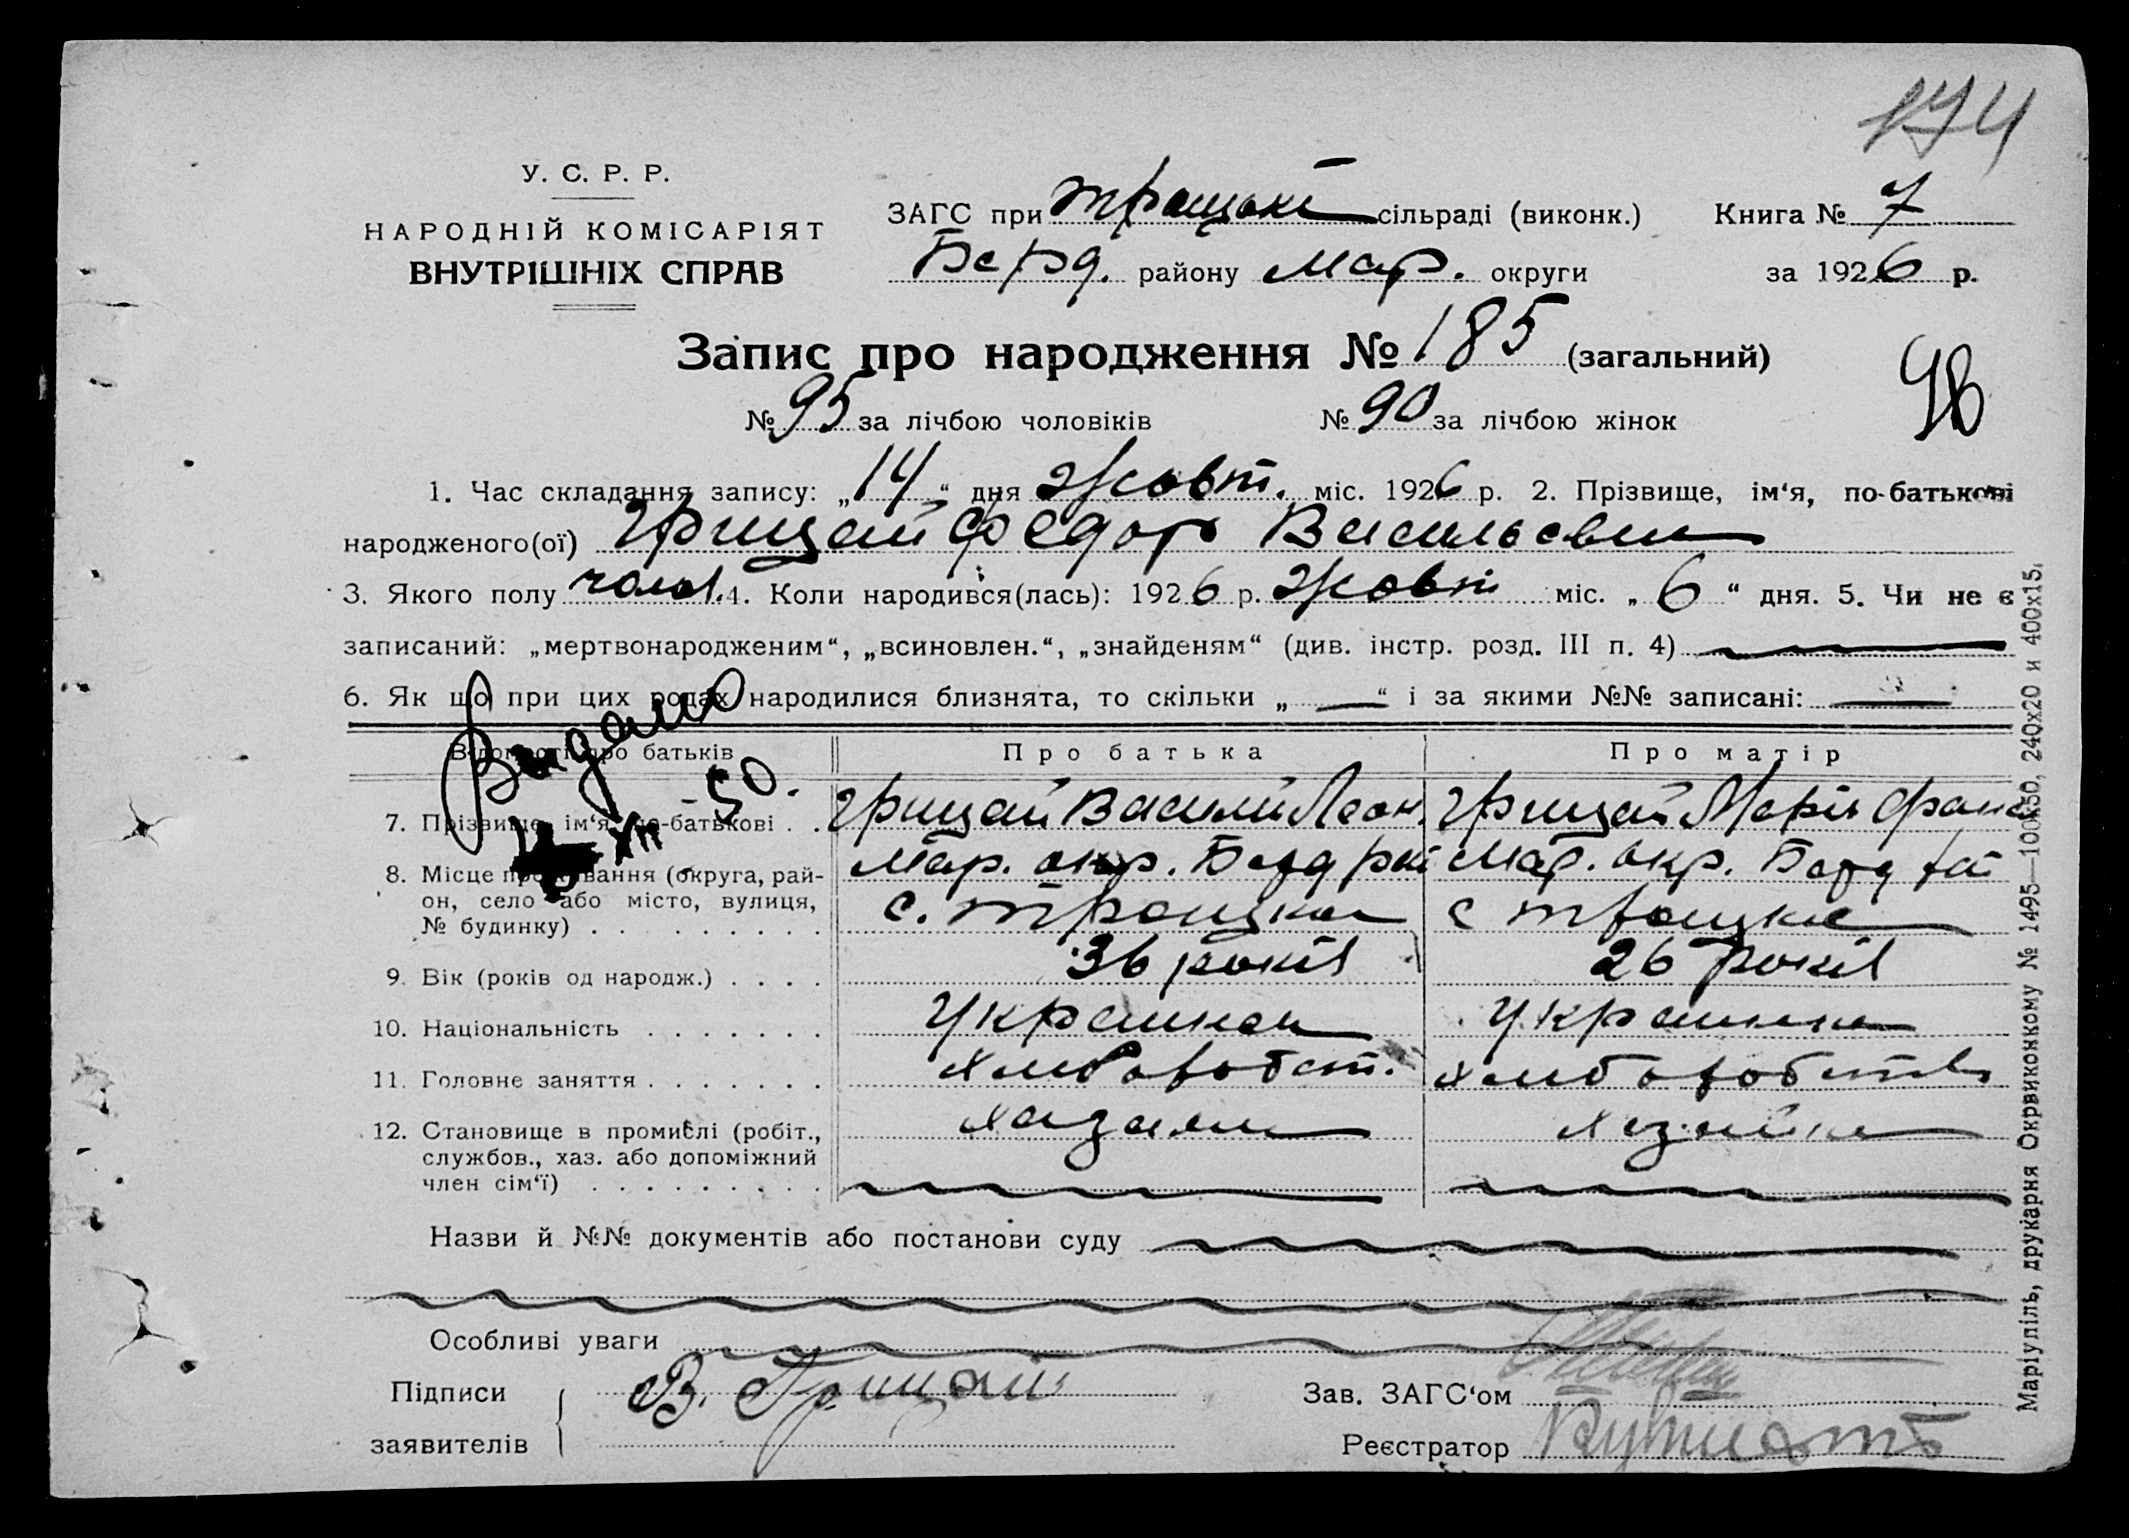 174
У. С. Р. Р.
НАРОДНІЙ КОМІСАРІЯТ
ВНУТРІШНІХ СПРАВ
ЗАГС при Троцькі сільраді (виконк.) Книга № 7
Берд. району Мар. округи за 1926 р.
Запис про народження № 185 (загальний)
98
№ 95 за лічбою чоловіків № 90 за лічбою жінок
1. Час складання запису: „14“ дня Жовт. міс. 1926 р. 2. Прізвище, ім‘я, по-батькові
народженого(ої) Грицай Федор Васильевич
3. Якого полу чолов. 4. Коли народився(лась): 1926 р. Жовт міс. „6“ дня. 5. Чи не є
записаний: „мертвонародженим“, „всиновлен.“, „знайденям“ (див. інстр. розд. III п. 4)
6. Як що при цих родах народилися близнята, то скільки „ — “ і за якими №№ записані: —
Видано
XII 50.
Відомості про батьків Про батька Про матір
7. Прізвище, ім‘я, по-батькові . . Грицай Василь Леон. Грицай Марія
8. Місце проживання (округа, рай- Мар. окр. Берд рай Мар. окр. Берд рай
он, село або місто, вулиця, с. Троцка с Троцке
№ будинку) . . . . . . . . .
9. Вік (років од народж.) . . . . 36 років 26 років
10. Національність . . . . . . . Украинец Украинка
11. Головне заняття . . . . . . . хлиборобст. хлиборобств
12. Становище в промислі (робіт., хазаин хазяйка
службов., хаз. або допоміжний
член сім‘ї) . . . . . . . . .
Назви й №№ документів або постанови суду
Особливі уваги
Підписи В. Грицай Зав. ЗАГС‘ом
заявителів Реєстратор
Маріупіль, друкарня Окрвиконкому № 1495—100х50, 240х20 и 400х15.